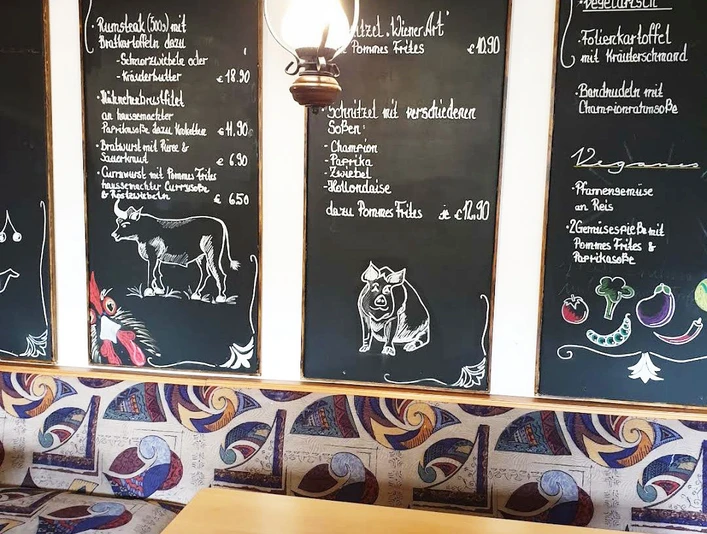 Rumsteak (300g) mit
Bratkartoffeln dazu
-Schmorzwiebeln oder
-Kräuterbutter € 18.90
Hähnchenbrustfilet
an hausgemachter
Paprikasoße dazu Kroketten € 11.90
Bratwurst mit Püree &
Sauerkraut € 6.90
Currywurst mit Pommes Frites
hausgemachter Currysoße
& Röstzwiebeln € 6.50
"Wiener Art"
Pommes Frites € 10.90
Schnitzel mit verschiedenen
Soßen:
- Champion
- Paprika
- Zwiebel
- Hollondaise
dazu Pommes Frites je € 12.90
Vegetarisch
Folienkartoffel
mit Kräuterschmand
Bandnudeln mit
Championrahmsoße
Veganes
Pfannengemüse
an Reis
2 Gemüsespieße mit
Pommes Frites &
Paprikasoße